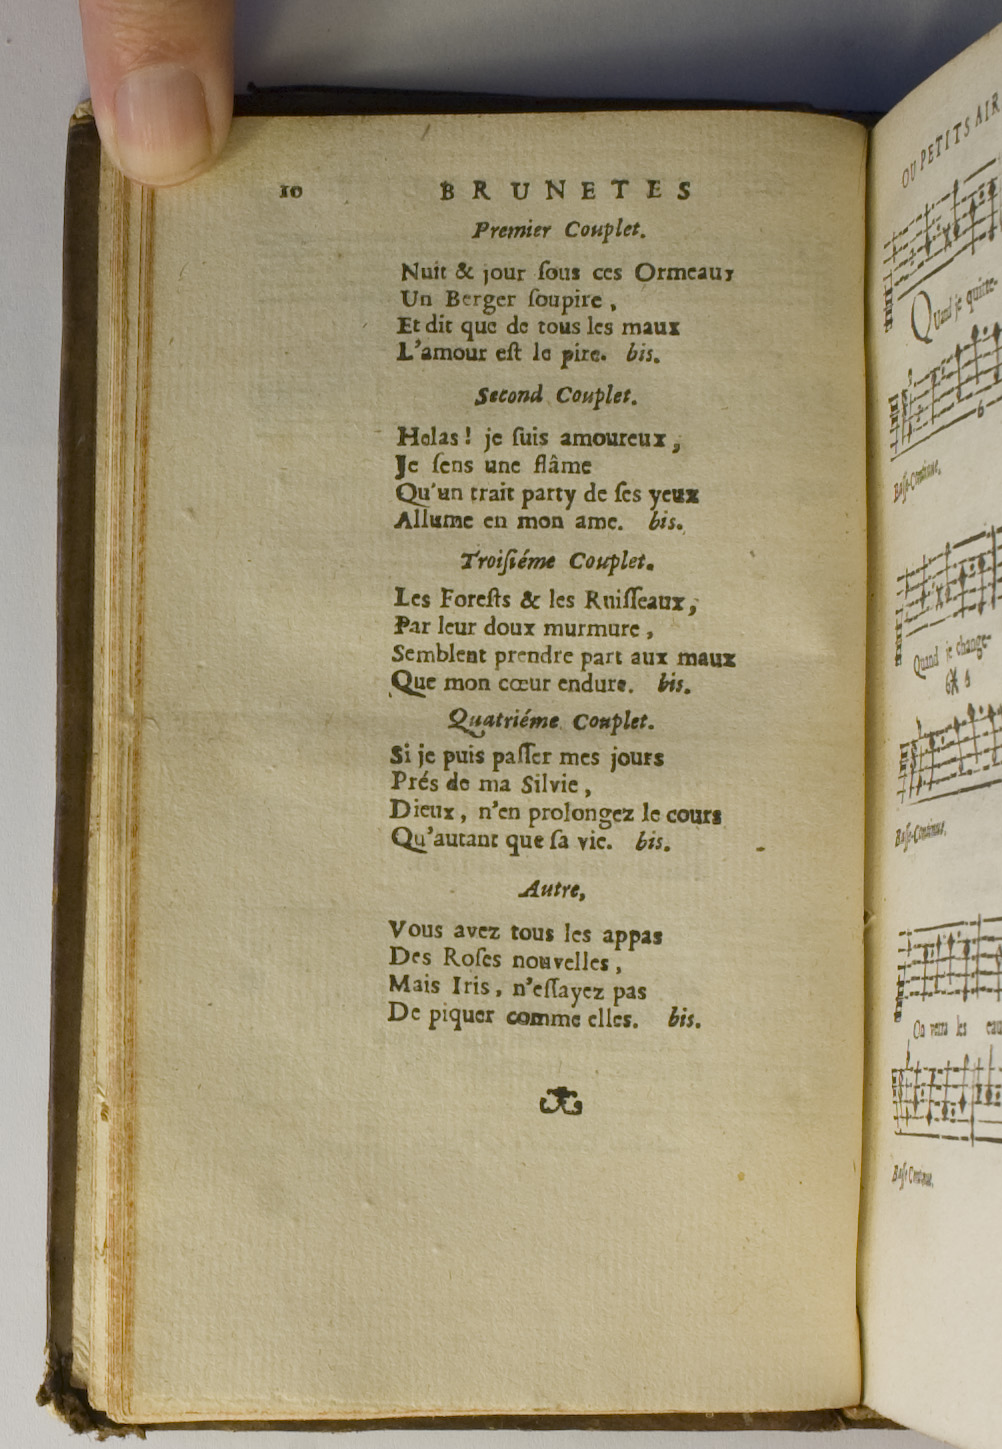 10 BRUNETES
Premier Couplet.
Nuit & jour ſous ces Ormeaux
Un Berger ſoupire,
Et dit que de tous les maux
L'amour eſt le pire. bis.
Second Couplet.
Helas! je ſuis amoureux,
Je ſens une flâme
Qu'un trait party de ſes yeux
Allume en mon ame. bis.
Troiſiéme Couplet.
Les Foreſts & les Ruiſſeaux,
Par leur doux murmure,
Semblent prendre part aux maux
Que mon cœur endure. bis.
Quatriéme Couplet.
Si je puis paſſer mes jours
Prés de ma Silvie,
Dieux, n'en prolongez le cours
Qu'autant que ſa vie. bis.
Autre,
Vous avez tous les appas
Des Roſes nouvelles,
Mais Iris, n'eſſayez pas
De piquer comme elles. bis.
OU PETITS AIR
QUand je quitte-
6
Baſſe-Continue.
Quand je change-
Baſſe-Continue.
On verra les eau
Baſſe Continue.